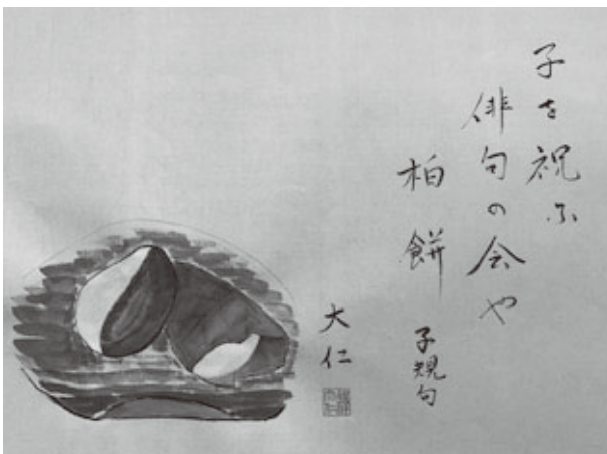 子を祝ふ
俳句の会や
柏餅
子規句
大仁